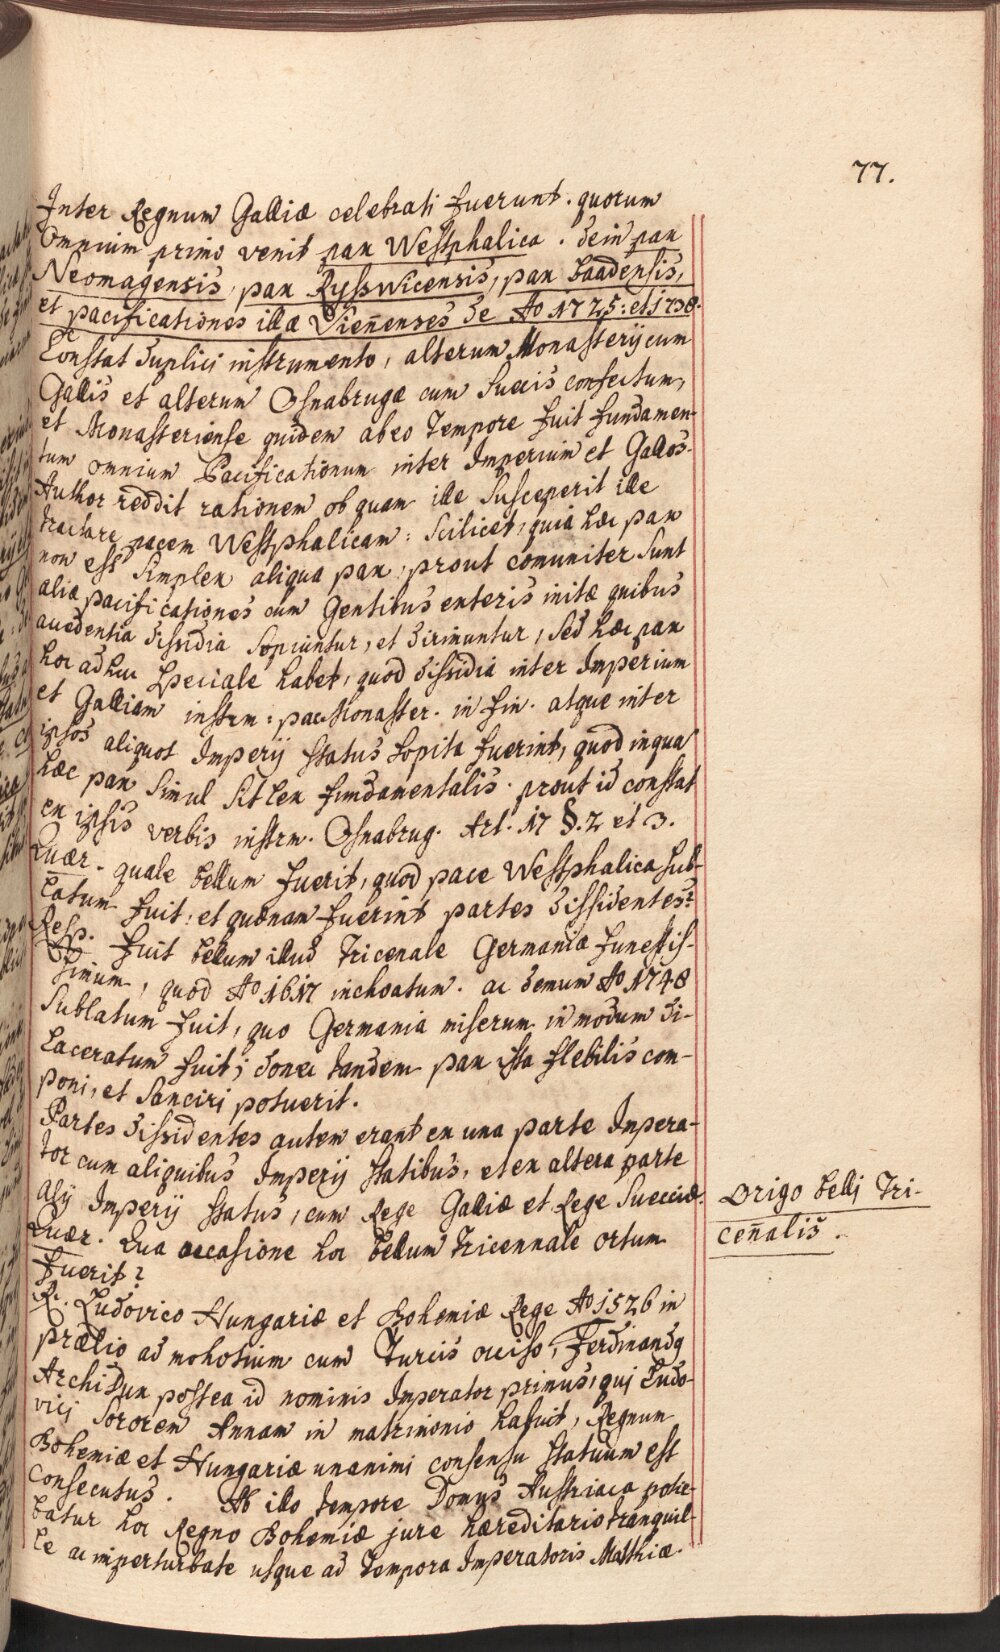 77.
Inter Regnum Galliæ celebrati fuerunt. quorum
Omnium primo venit pax Westphalica. dein pax
Neomagensis, pax Rysswicensis, pax Baadensis,
et pacificationes illæ Vien̄enses de Ao 1725: et 1738.
Constat duplici instrumento, alterum Monasterij cum
Gallis et alterum Osnabrugæ cum Suecis confectum,
et Monasteriense quidem ab eo Tempore fuit fundamen-
tum omnium Pacificationum inter Imperium et Gallos.
Author reddit rationem ob quam ille susceperit ille
tractare pacem Westphalicam: scilicet, quia hæc pax
non est simplex aliqua pax, prout com̄uniter sunt
aliæ pacificationes cum Gentibus exteris initæ quibus
accedentia dissidia sopiuntur, et dirimuntur, sed hæc pax
hoc adhuc speciale habet, quod dissidia inter Imperium
et Galliam instrm: pac: Monaster. in fin. atque inter
ipsos aliquot Imperij status sopita fuerint, quod in qua
hæc pax simul sit lex fundamentalis. prout id constat
ex ipsis verbis instrm. Osnabrug. Art. 17 §. 2 et 3.
Quær. quale bellum fuerit, quod pace Westphalica sub-
latum fuit, et quænam fuerint partes dissidentes?
Resp. fuit bellum illud Tricenale Germaniæ funestis-
simum, quod Ao 1617 inchoatum. ac demum Ao 1748
sublatum fuit, quo Germania miserum in modum di-
laceratum fuit; donec tandem pax ista flebilis com-
poni, et sanciri potuerit.
Partes dissidentes autem erant ex una parte Impera-
tor cum aliquibus Imperij statibus, et ex altera parte
alij Imperij status, cum Rege Galliæ et Rege Sueciæ.
Quær. Qua occasione hoc bellum Tricennale ortum
fuerit?
R. Ludovico Hungariæ et Bohemiæ Rege Ao 1526 in
prælio ad mohotium cum Turcis occiso, Ferdinandq
Archidux postea id nominis Imperator primus, qui Ludo-
vici sororem Annam in matrimonio habuit, Regnum
Bohemiæ et Hungariæ unanimi consensu statuum est
Consecutus. Ab illo tempore Domus Austriaca potie-
batur hoc Regno Bohemiæ jure hæreditario tranquil-
le ac imperturbate usque ad tempora Imperatoris Matthiæ.
Origo belli Tri-
cen̄alis.